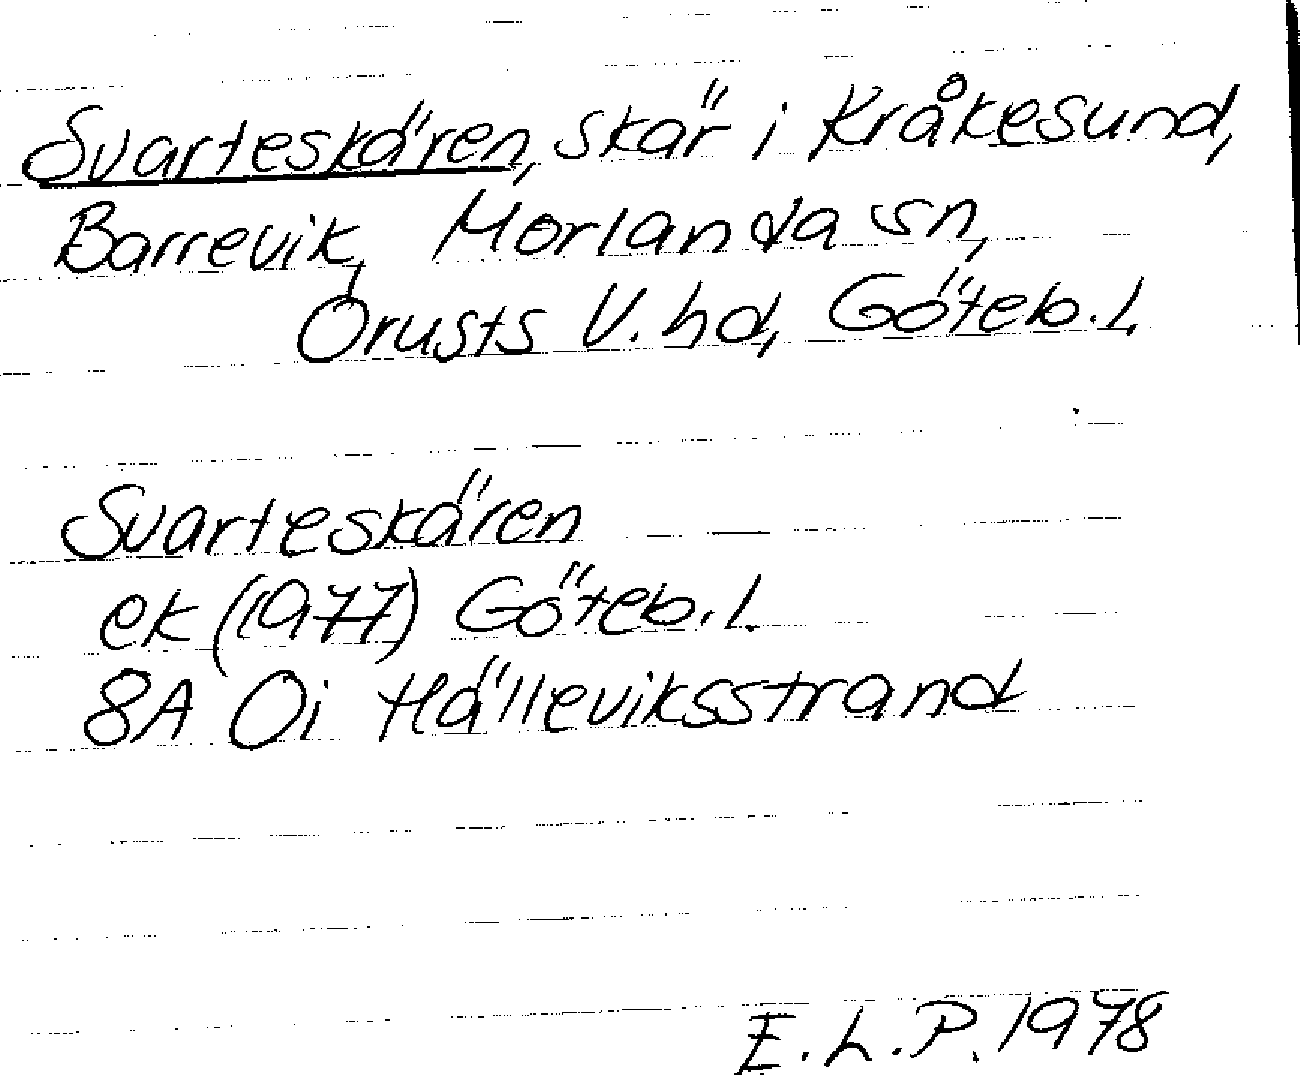 Svarteskären, skär i Kråkesund,
Barrevik, Morlanda sn,
Orusts V. hd, Göteb. l.
Svarteskären
ek (1977) Göteb. l.
8A 0i Hälleviksstrand
E. L. P. 1978